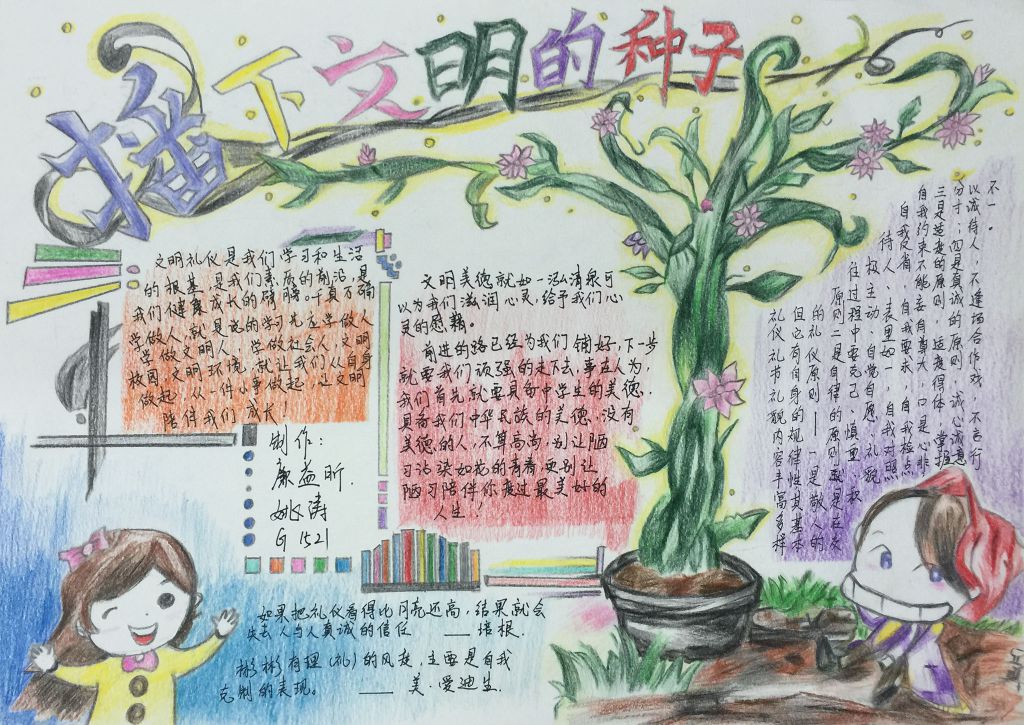 播下文明的种子
文明礼仪是我们学习和生活
的根基,是我们素质的前沿,是
我们健康成长的臂膀。千真万确
学做人,就是说的学习先应学做人
学做文明人,学做社会人,文明
校园,文明环境,就让我们从自身
做起,从一件小事做起,让文明
陪伴我们成长!
制作:
益昕.
姚涛
G1521
文明美德就如一泓清泉可
以为我们滋润心灵,给予我们心
灵的慰藉。
前进的路已经为我们铺好,下一步
就要我们顽强的走下去,事在人为,
我们首先就要具备中学生的美德.
具备我们中华民族的美德.没有
美德的人,不算高尚,别让陋
习沾染如花的青春,更别让
陋习陪伴你度过最美好的
人生!
不一。
以诚待人,不逢场合作戏,不言行
分寸;四是真诚的原则,诚心诚意
三是适度的原则,适度得体,掌握
自我约束不能妄自尊大,口是心非
自我反省,自我要求,自我检点
待人、表里如一,自我对照
极主动,自觉自愿、礼貌
往过程中要克己、慎重、积
原则二是自律的原则就是在交
的礼仪原则——一是敬人的
但它有自身的规律性其基本
礼仪礼节礼貌内容丰富多样
如果把礼仪看得比月亮还高,结果就会
失去人与人真诚的信任 ——培根.
彬彬有理(礼)的风度,主要是自我
克制的表现。 —— 美·爱迪生.